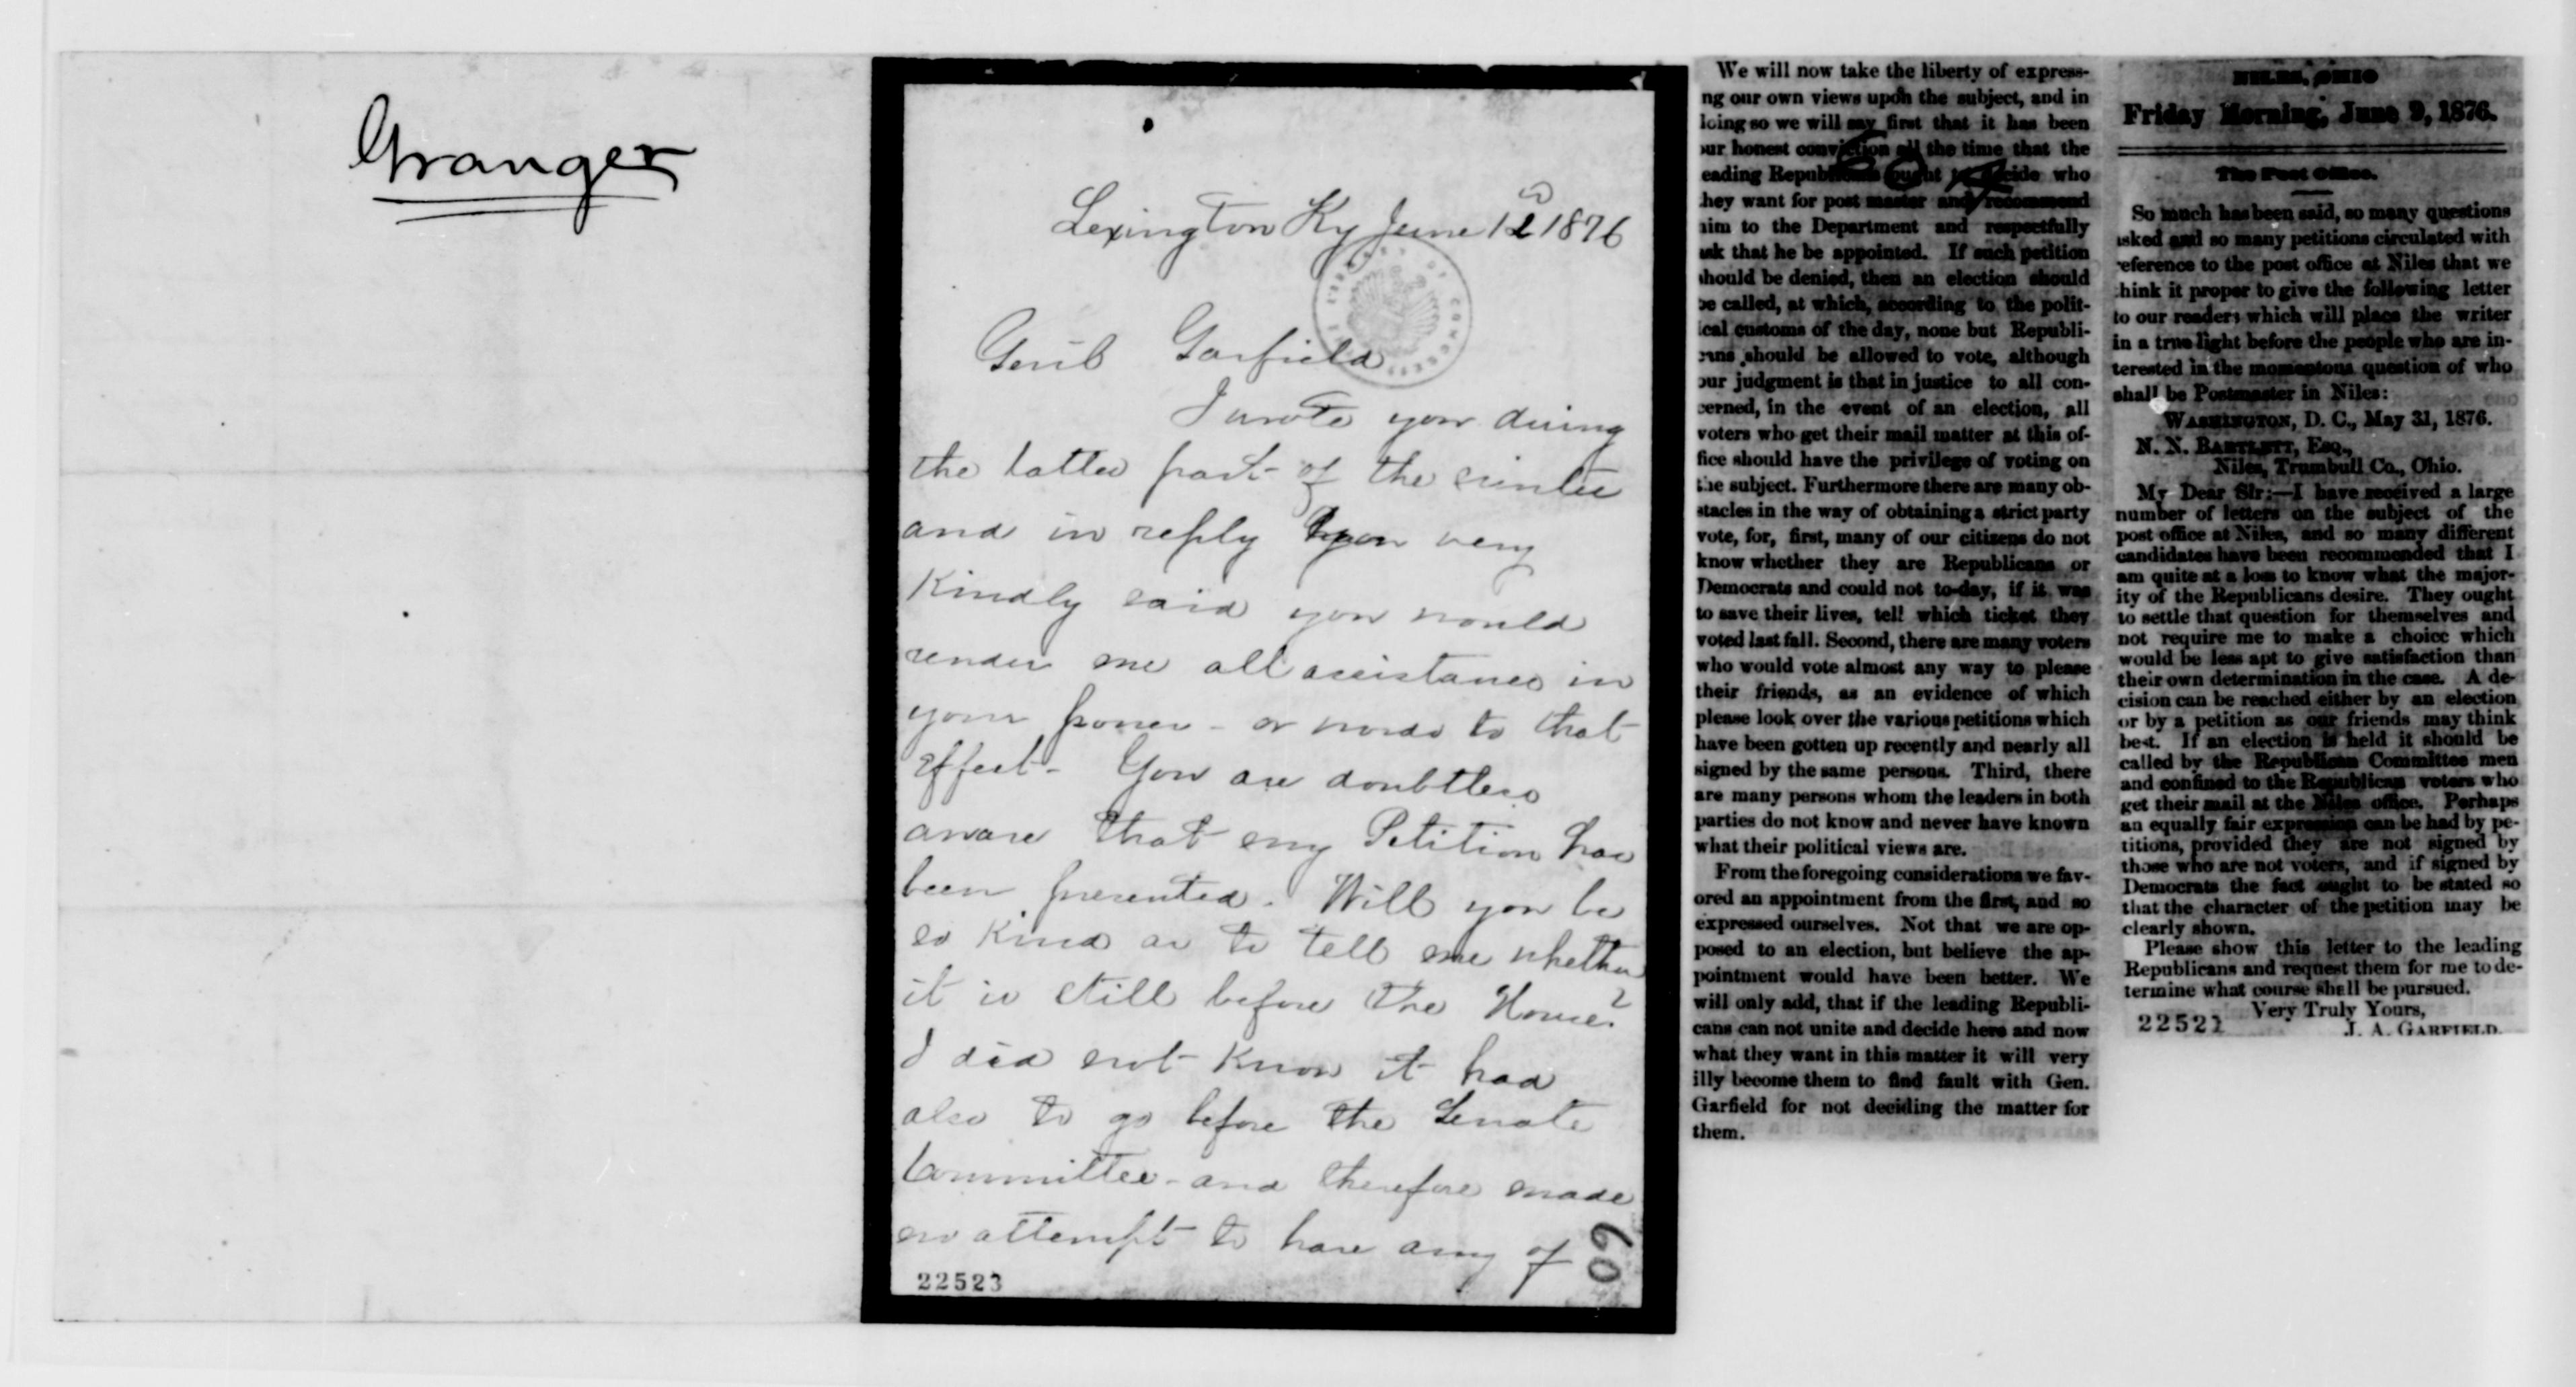 Granger
Lexington Ky June 12 1876
Genl Garfield
I wrote you during
the latter part of the winter
and in reply you very
kindly said you would
render me all assistance in
your power - or words to that
effect - You are doubtless
aware that my Petition has
been presented. Will you be
so kind as to tell me whether
it is still before the House?
I did not know it had
also to go before the Senate
Committee - and therefore made
no attempt to have any of
22523
609
We will now take the liberty of express-
ng our own views upon the subject, and in
loing so we will say first that it has been
ur honest conviction all the time that the
eading Republicans ought to decide who
hey want for post master and recommend
him to the Department and respectfully
ask that he be appointed. If such petition
should be denied, then an election should
be called, at which, according to the polit-
ical customs of the day, none but Republi-
cans should be allowed to vote, although
our judgment is that in justice to all con-
cerned, in the event of an election, all
voters who get their mail matter at this of-
fice should have the privilege of voting on
the subject. Furthermore there are many ob-
stacles in the way of obtaining a strict party
vote, for, first, many of our citizens do not
know whether they are Republicans or
Democrats and could not to-day, if it was
to save their lives, tell which ticket they
voted last fall. Second, there are many voters
who would vote almost any way to please
their friends, as an evidence of which
please look over the various petitions which
have been gotten up recently and nearly all
signed by the same persons. Third, there
are many persons whom the leaders in both
parties do not know and never have known
what their political views are.
From the foregoing considerations we fav-
ored an appointment from the first, and so
expressed ourselves. Not that we are op-
posed to an election, but believe the ap-
pointment would have been better. We
will only add, that if the leading Republi-
cans can not unite and decide here and now
what they want in this matter it will very
illy become them to find fault with Gen.
Garfield for not deciding the matter for
them.
NILES, OHIO
Friday Morning, June 9, 1876.
The Post Office.
So much has been said, so many questions
asked and so many petitions circulated with
reference to the post office at Niles that we
think it proper to give the following letter
to our readers which will place the writer
in a true light before the people who are in-
terested in the momentous question of who
shall be Postmaster in Niles:
WASHINGTON, D. C., May 31, 1876.
N. N. BARTLETT, ESQ.,
Niles, Trumbull Co., Ohio.
My Dear Sir:—I have received a large
number of letters on the subject of the
post office at Niles, and so many different
candidates have been recommended that I
am quite at a loss to know what the major-
ity of the Republicans desire. They ought
to settle that question for themselves and
not require me to make a choice which
would be less apt to give satisfaction than
their own determination in the case. A de-
cision can be reached either by an election
or by a petition as our friends may think
best. If an election is held it should be
called by the Republican Committee men
and confined to the Republican voters who
get their mail at the Niles office. Perhaps
an equally fair expression can be had by pe-
titions, provided they are not signed by
those who are not voters, and if signed by
Democrats the fact ought to be stated so
that the character of the petition may be
clearly shown.
Please show this letter to the leading
Republicans and request them for me to de-
termine what course shall be pursued.
Very Truly Yours,
J. A. GARFIELD.
22521